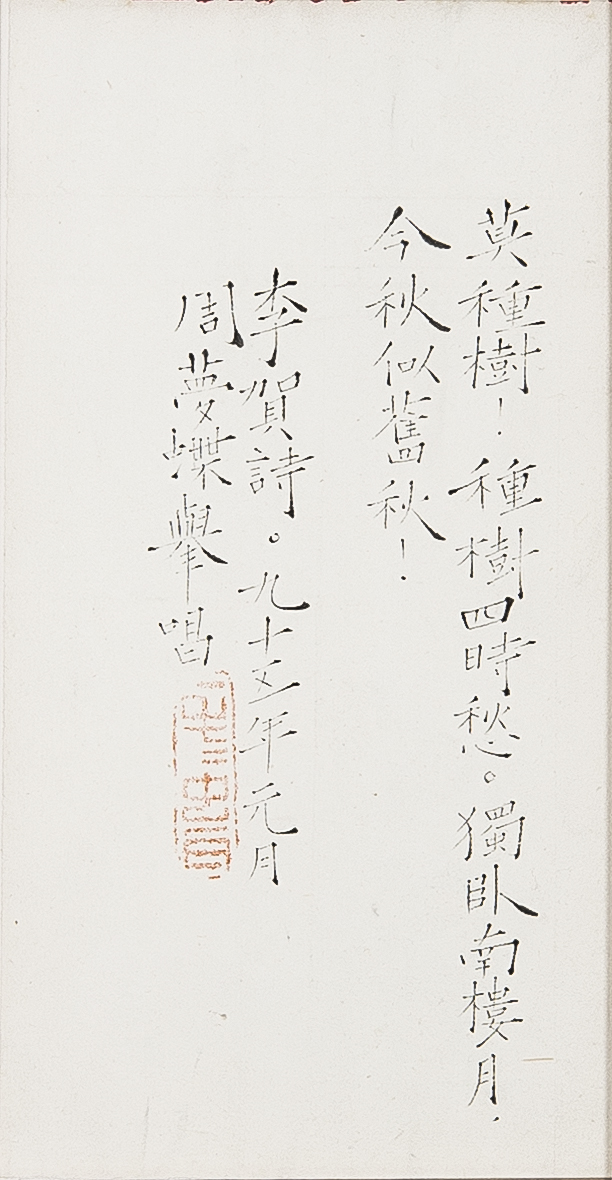 莫種樹！種樹四時愁。獨臥南樓月，
今秋似舊秋！
李賀詩。九十五年元月
周夢蝶舉唱